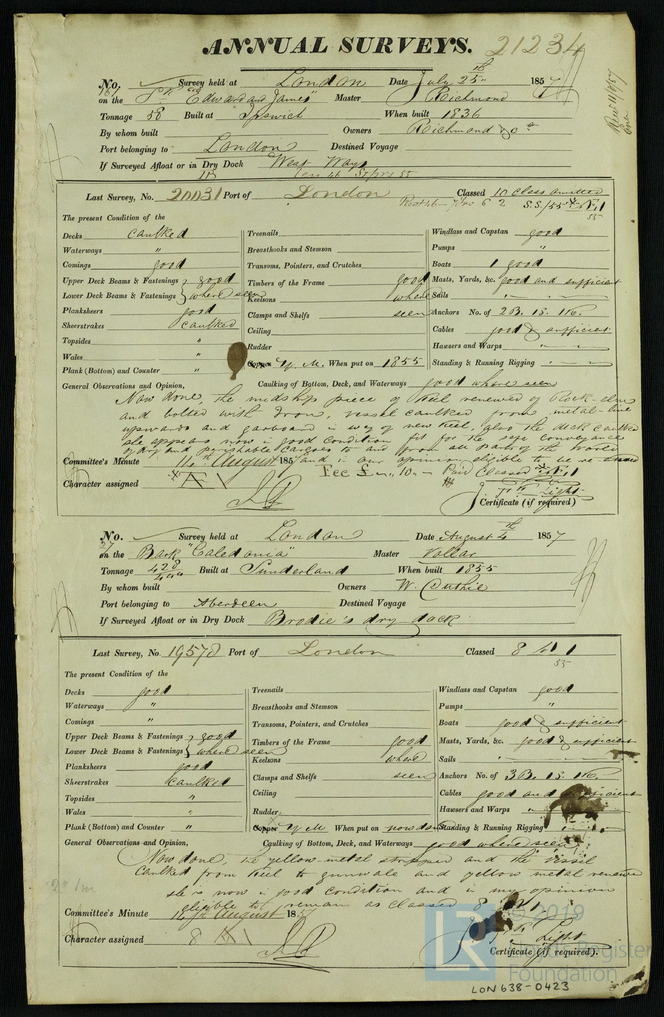 ANNUAL SURVEYS. 21234
No. Survey held at London Date July 25th 1857
on the "Edward and James" Master Richmond
Tonnage 58 Built at Ipswich When built 1836
By whom built Owners Richmond & Co
Port belonging to London Destined Voyage
If Surveyed Afloat or in Dry Dock West Ways
Last Survey, No. 20031 Port of London Classed 10 class omitted
The present Condition of the
Decks caulked Treenails Windlass and Capstan good
Waterways " Breasthooks and Stemson Pumps "
Comings good Transoms, Pointers, and Crutches Boats 1 good
Upper Deck Beams & Fastenings good Timbers of the Frame good Masts, Yards, &c. good and sufficient
Lower Deck Beams & Fastenings where seen Keelsons where Sails "
Planksheers good Clamps and Shelfs seen Anchors No. of 2B. 1S. 1K.
Sheerstrakes caulked Ceiling Cables good & sufficient
Topsides " Rudder Hawsers and Warps "
Wales " Copper Y.M. When put on 1855 Standing & Running Rigging "
Plank (Bottom) and Counter "
General Observations and Opinion, Caulking of Bottom, Deck, and Waterways good where seen
Now done, the midship piece of keel renewed of Rock-elm
and bolted with Iron, vessel caulked from metal-line
upwards and garboard in way of new keel, also the deck caulked
she appears now in good condition fit for the safe conveyance
of dry and perishable cargoes to and from all parts of the World
Committee's Minute 14th August 1857 and in our opinion eligible to be
Character assigned Fee £ 10 Paid Classed
Certificate (if required)
No. Survey held at London Date August 4th 1857
on the Bark "Caledonia" Master Vollar
Tonnage 428 Built at Sunderland When built 1855
By whom built Owners W. Duthie
Port belonging to Aberdeen Destined Voyage
If Surveyed Afloat or in Dry Dock Brodie's dry dock
Last Survey, No. 19578 Port of London Classed 8 A 1
55
The present Condition of the
Decks good Treenails Windlass and Capstan good
Waterways " Breasthooks and Stemson Pumps "
Comings " Transoms, Pointers, and Crutches Boats good & sufficient
Upper Deck Beams & Fastenings good Timbers of the Frame good Masts, Yards, &c. good & sufficient
Lower Deck Beams & Fastenings where seen Keelsons where Sails "
Planksheers good Clamps and Shelfs seen Anchors No. of 3B. 1S. 1K.
Sheerstrakes caulked Ceiling Cables good and sufficient
Topsides " Rudder Hawsers and Warps "
Wales " Copper Y.M When put on now done Standing & Running Rigging "
Plank (Bottom) and Counter "
General Observations and Opinion, Caulking of Bottom, Deck, and Waterways good where seen
Now done, the yellow-metal stripped and the vessel
caulked from keel to gunwale and yellow metal renewed
she is now in good condition and in my opinion
eligible to remain as classed 8 A 1
Committee's Minute 14th August 1857
Character assigned 8 A 1
Certificate (if required).
© 2019
Lloyd's Register
Foundation
LON638-0423